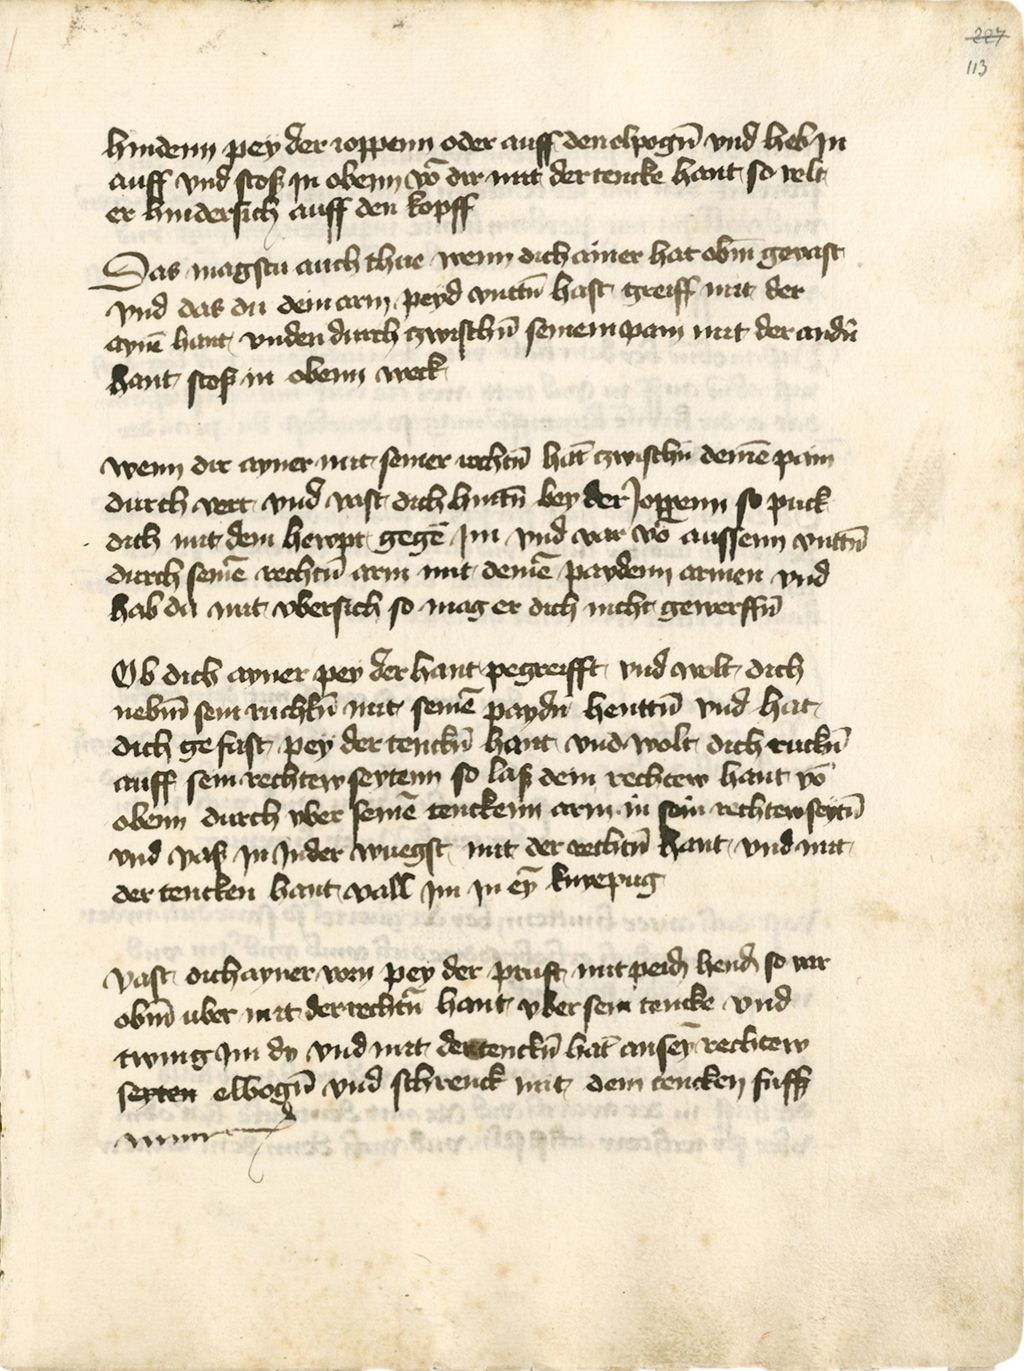 227
113
hindenn pey der ioppenn oder auff den elpogn̄ vnd heb in
auff vnd stoß in obenn vō dir mit der tencke hant so velt
er hindersich auff den kopff
Das magstu auch thue wenn dich ainer hat obn̄ gevast
vnd das du dein arm peyd vnttn̄ hast greiff mit der
aynē hant vnden durch zwischn̄ seinem pain mit der andn̄
hant stoß in obenn weck
wenn dir ayner mit seiner rechtn̄ hāt zwischn̄ deinē pain
durch vert vnd vast dich hintn̄ bey der Joppenn so puck
dich mit dem hewpt gegē im vnd var vō aussenn vnttn̄
durch seinē rechtn̄ arm mit deinē paydenn armen vnd
hab da mit vbersich so mag er dich nicht gewerffn̄
Ob dich ayner pey der hant pegreifft vnd wolt dich
nebm̄ sein ruchkn̄ mit seinē paydn̄ henttn̄ vnd hat
dich gefast pey der tenckn̄ hant vnd wolt dich ruckn̄
auff sein rechtew seytenn so laß dein rechtew hant vō
obenn durch vber seinē tenckenn arm in sein rechtew seytn̄
vnd vaß in in der wuegst mit der rechtn̄ hant vnd mit
der tencken hant vall im in ey̅ knyepug
vast dich ayner vorn pey der prust mit peidn̄ hendn̄ so var
obn̄ uber mit der rechtn̄ hant vber sein tencke vnd
twing im dy vnd mit der tenckn̄ hāt an seȳ rechtew
seyten elbogn̄ vnd schrenck mit dem tencken fuß